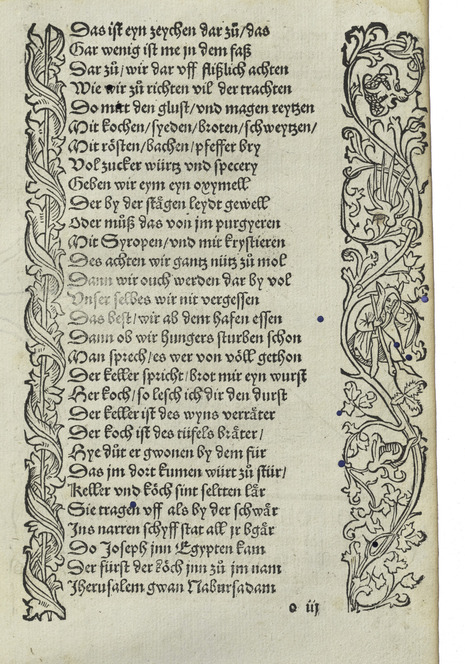 Das ist eyn zeychen dar zů/das
Gar wenig ist me in dem faß
Dar zů/wir dar vff flißlich achten
Wie wir zů richten vil der trachten
Do mitt den glust/vnd magen reytzen
Mit kochen/syeden/broten/schweytzen/
Mit rösten/bachen/pfeffer bry
Vol zucker würtz vnd specery
Geben wir eym eyn oxymell
Der by der stägen leydt gewell
Oder můß das von jm purgyeren
Mit Syropen/vnd mit krystieren
Des achten wir gantz nütz zů mol
Dann wir ouch werden dar by vol
Vnser selbes wir nit vergessen
Das best/wir ab dem hafen essen
Dann ob wir hungers sturben schon
Man sprech/es wer von völl gethon
Der keller spricht/brot mir eyn wurst
Her koch/so lesch ich dir den durst
Der keller ist des wyns verräter
Der koch ist des tüfels bräter/
Hye důt er gwonen by dem für
Das jm dort kumen würt zů stür/
Keller vnd köch sint seltten lär
Sie tragen vff als by der schwär
Ins narren schyff stat all jr bgär
Do Joseph jnn Egypten kam
Der fürst der köch jnn zů jm nam
Jherusalem gwan Nabursadam
o iij